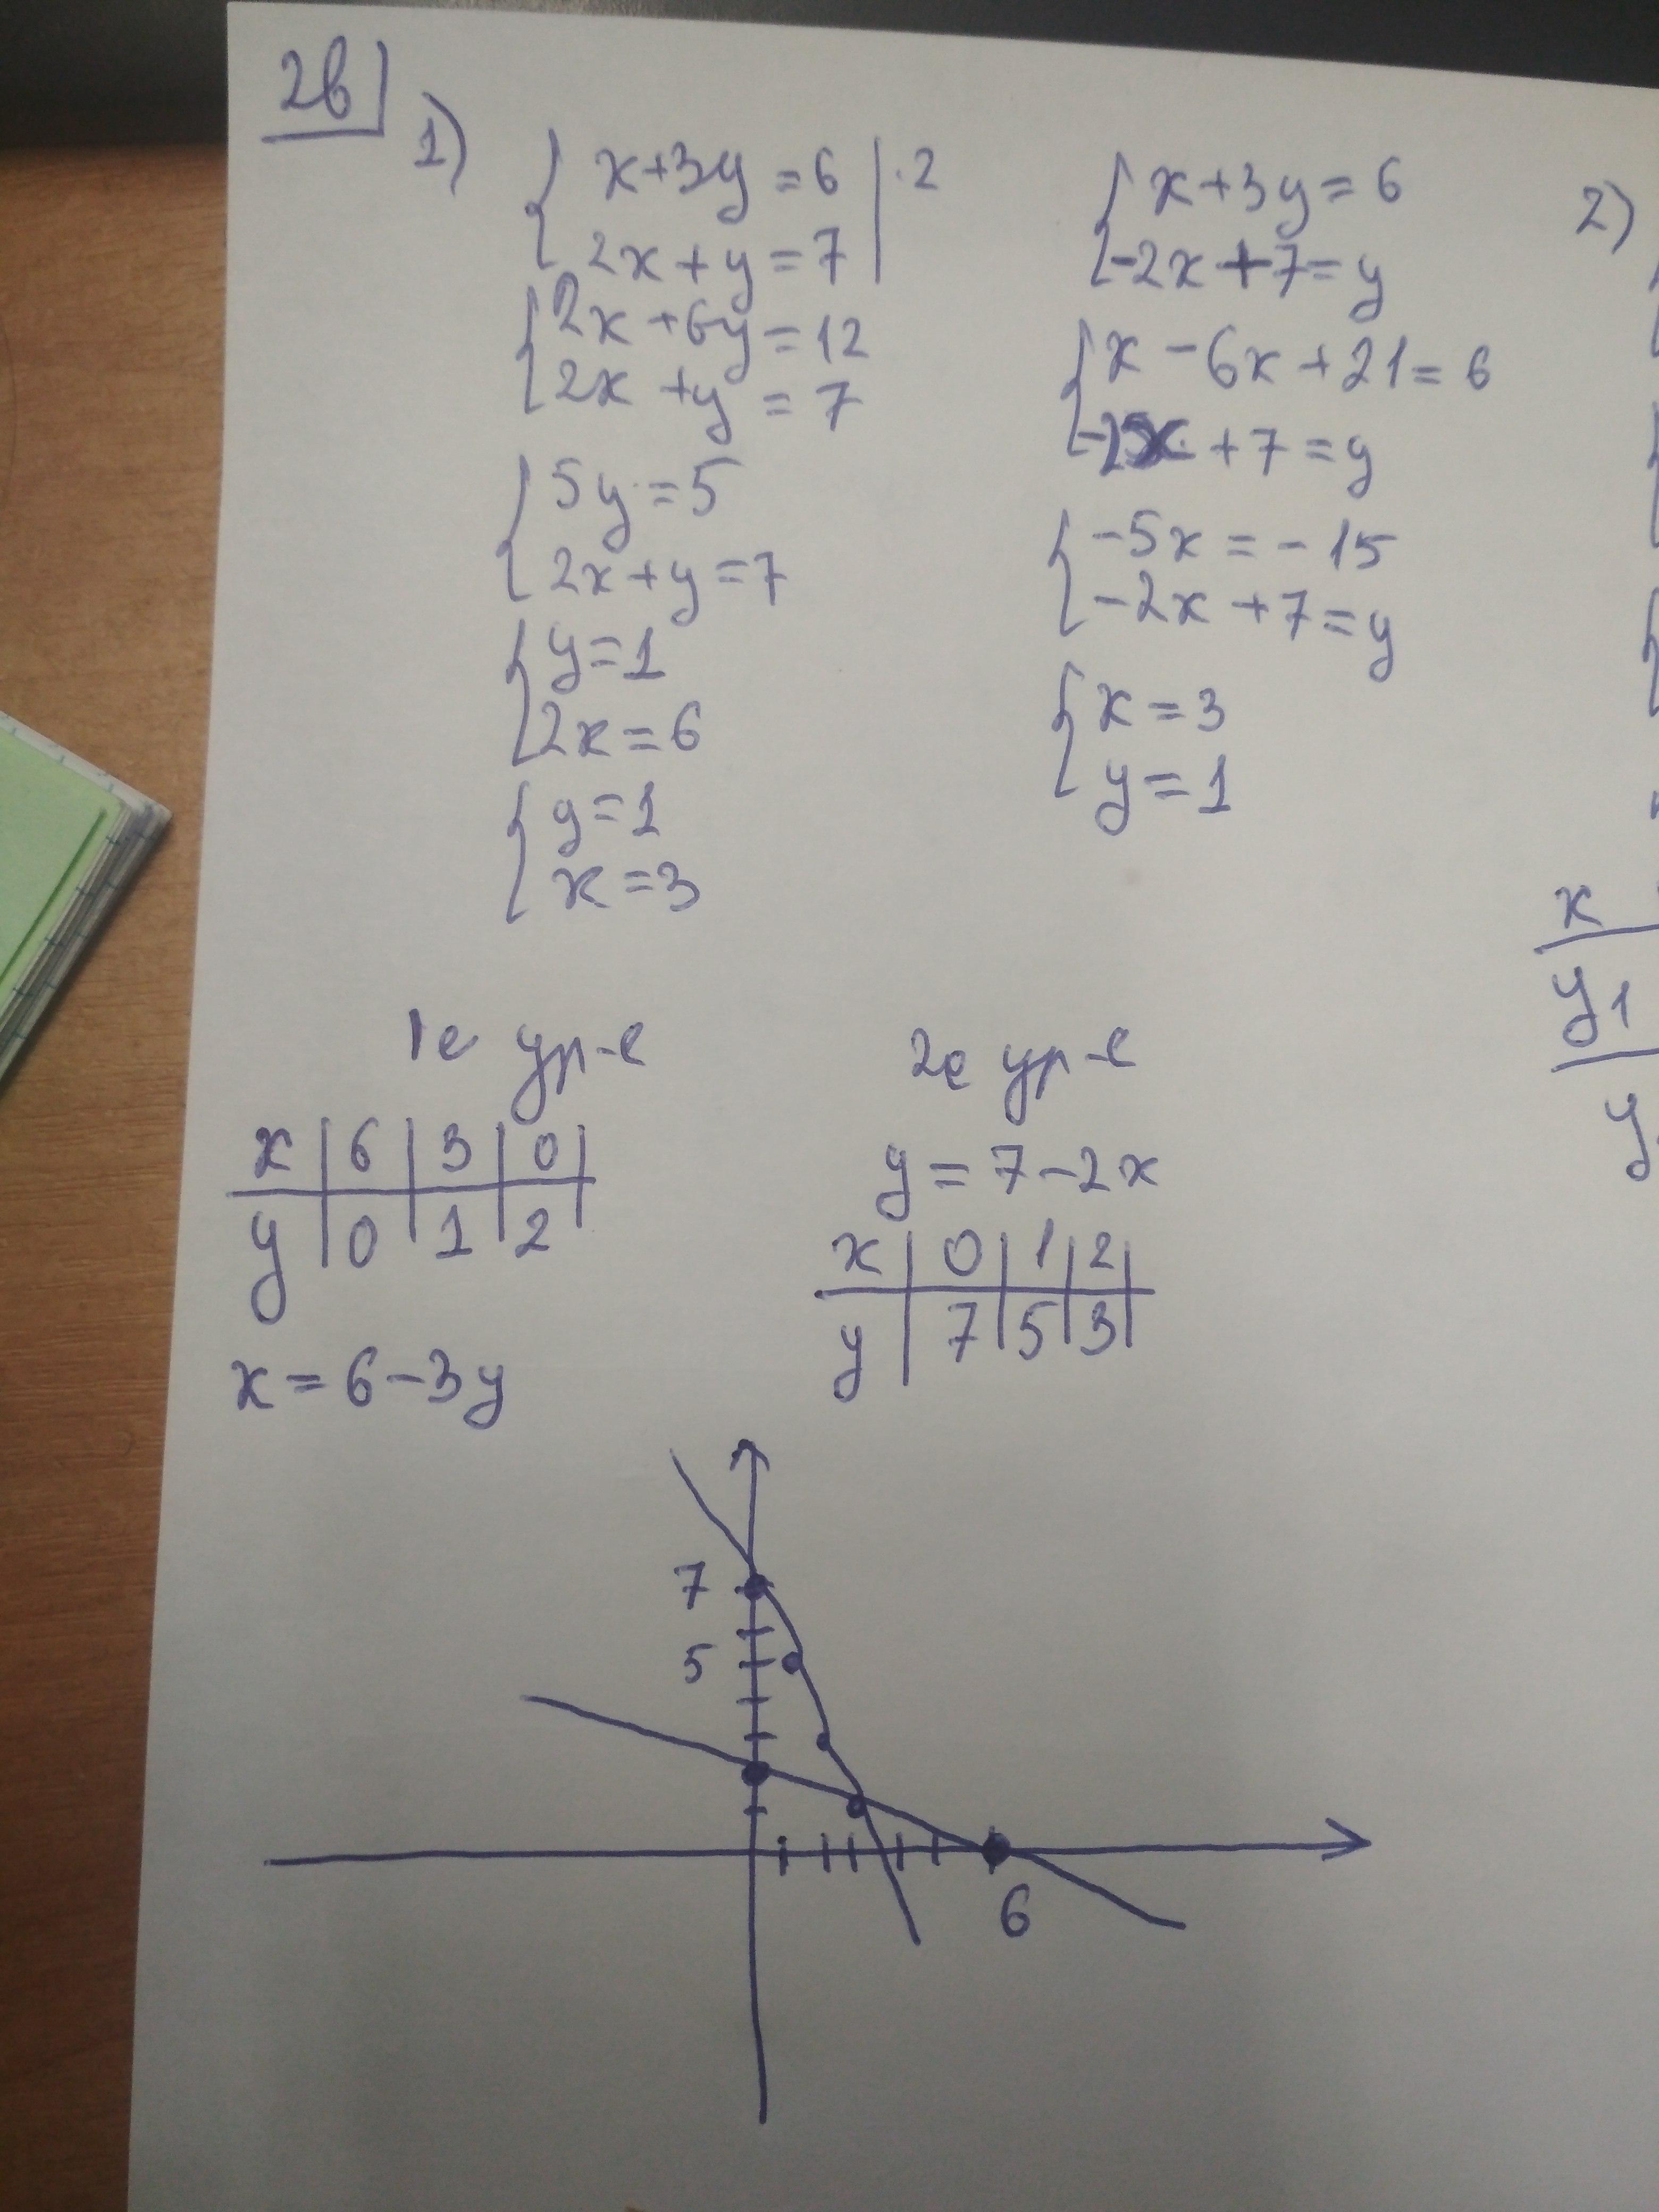 2в
1)
{ x+3y=6 | ·2
2x+y=7
{ 2x+6y=12
2x+y=7
{ 5y=5
2x+y=7
{ y=1
2x=6
{ y=1
x=3
{ x+3y=6
-2x+7=y
{ x-6x+21=6
-2x+7=y
{ -5x=-15
-2x+7=y
{ x=3
y=1
2)
x
y1
y
1е ур-е
x | 6 | 3 | 0 |
y | 0 | 1 | 2 |
x=6-3y
2е ур-е
y=7-2x
x | 0 | 1 | 2 |
y | 7 | 5 | 3 |
7
5
6